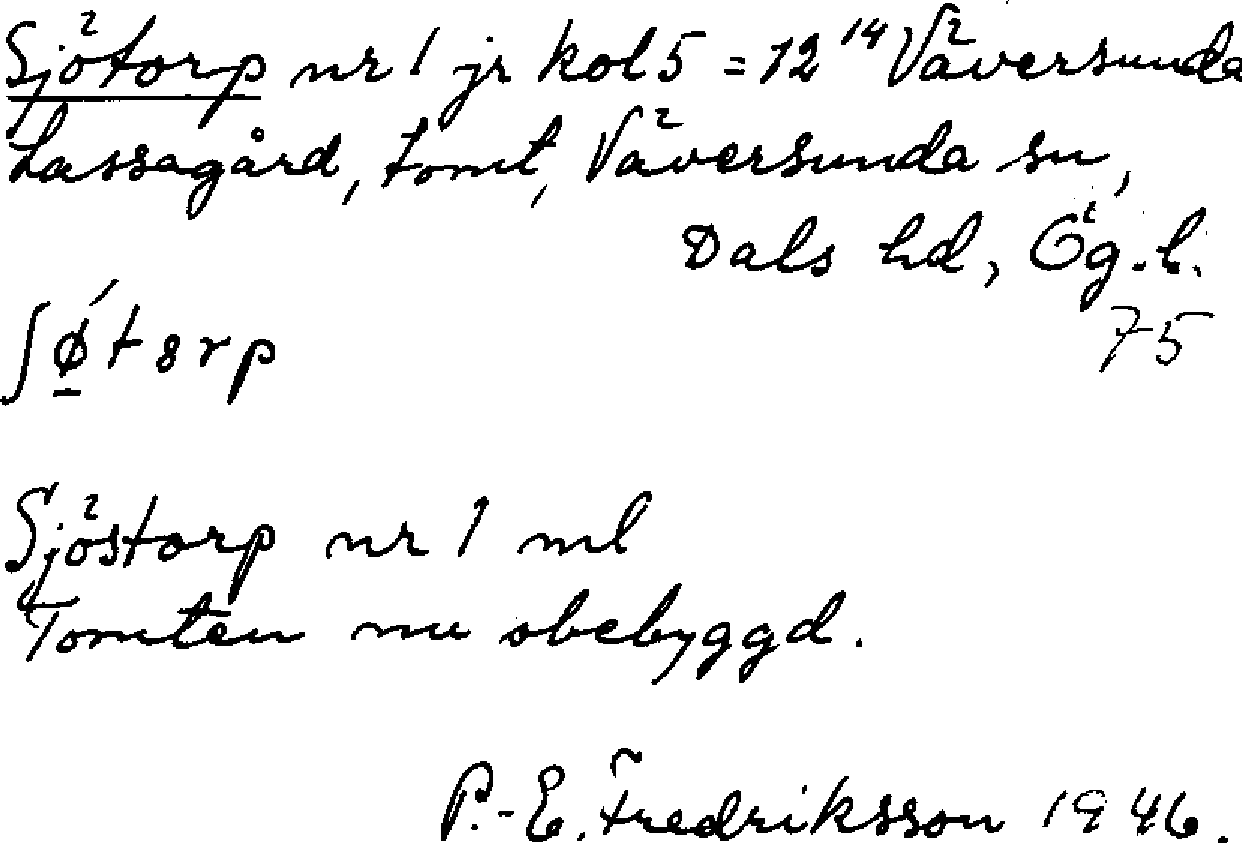 Sjötorp nr 1 jr kol 5 = 12¹⁴ Väversunda
Lassagård, tomt, Väversunda sn,
Dals hd, Ög.l.
75
ʃǿ̱tɞrp
Sjöstorp nr 1 ml
Tomten nu obebyggd.
P.-E. Fredriksson 1946.